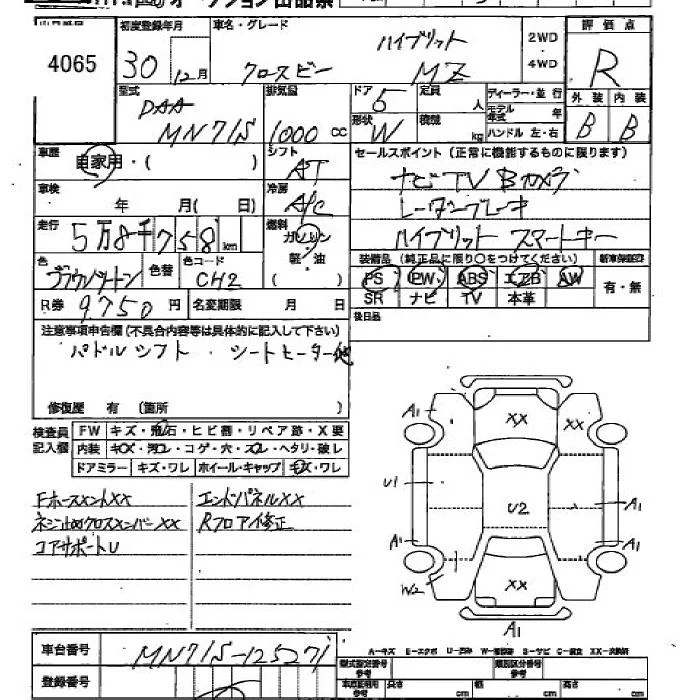 オークション出品票
4065
初度登録年月
30
12月
車名・グレード
ハイブリット
クロスビー MZ
2WD
4WD
評価点
R
外装 内装
B B
型式
DAA
MN71S
排気量
1000 cc
ドア 5
定員 人
形状 W
積載 kg
ディーラー・並行
モデル年式 年
ハンドル 左・右
車歴 自家用・( )
シフト
AT
セールスポイント(正常に機能するものに限ります)
ナビ TV Bカメラ
レーダーブレーキ
ハイブリット スマートキー
車検 年 月( 日)
冷房
A/C
走行 5万8千758km
燃料
ガソリン
軽油
( )
色
ブラウンツートン
色替
色コード
CH2
装備品(純正品に限り○をつけてください)
PS PW ABS エアB AW
SR ナビ TV 本革
新車保証書
有・無
R券 9750円
名変期限 月 日
後日品
注意事項申告欄(不具合内容等は具体的に記入して下さい)
パドルシフト・シートヒーター他
修復歴 有 (箇所 )
検査員記入欄
FW キズ・飛石・ヒビ割・リペア跡・X要
内装 キズ・汚レ・コゲ・穴・スレ・ヘタリ・破レ
ドアミラー キズ・ワレ ホイール・キャップ キズ・ワレ
FホースメントXX
ネジ止めクロスメンバーXX
コアサポートU
エンドパネルXX
Rフロア修正
A1
XX
XX
U1
U2
A1
A1
A1
W2
XX
A1
A-キズ E-エクボ U-凹み W-補修跡 S-サビ C-腐食 XX-交換済
車台番号 MN71S-125271
登録番号
型式指定番号
参考
類別区分番号
参考
長さ cm
幅 cm
高さ cm